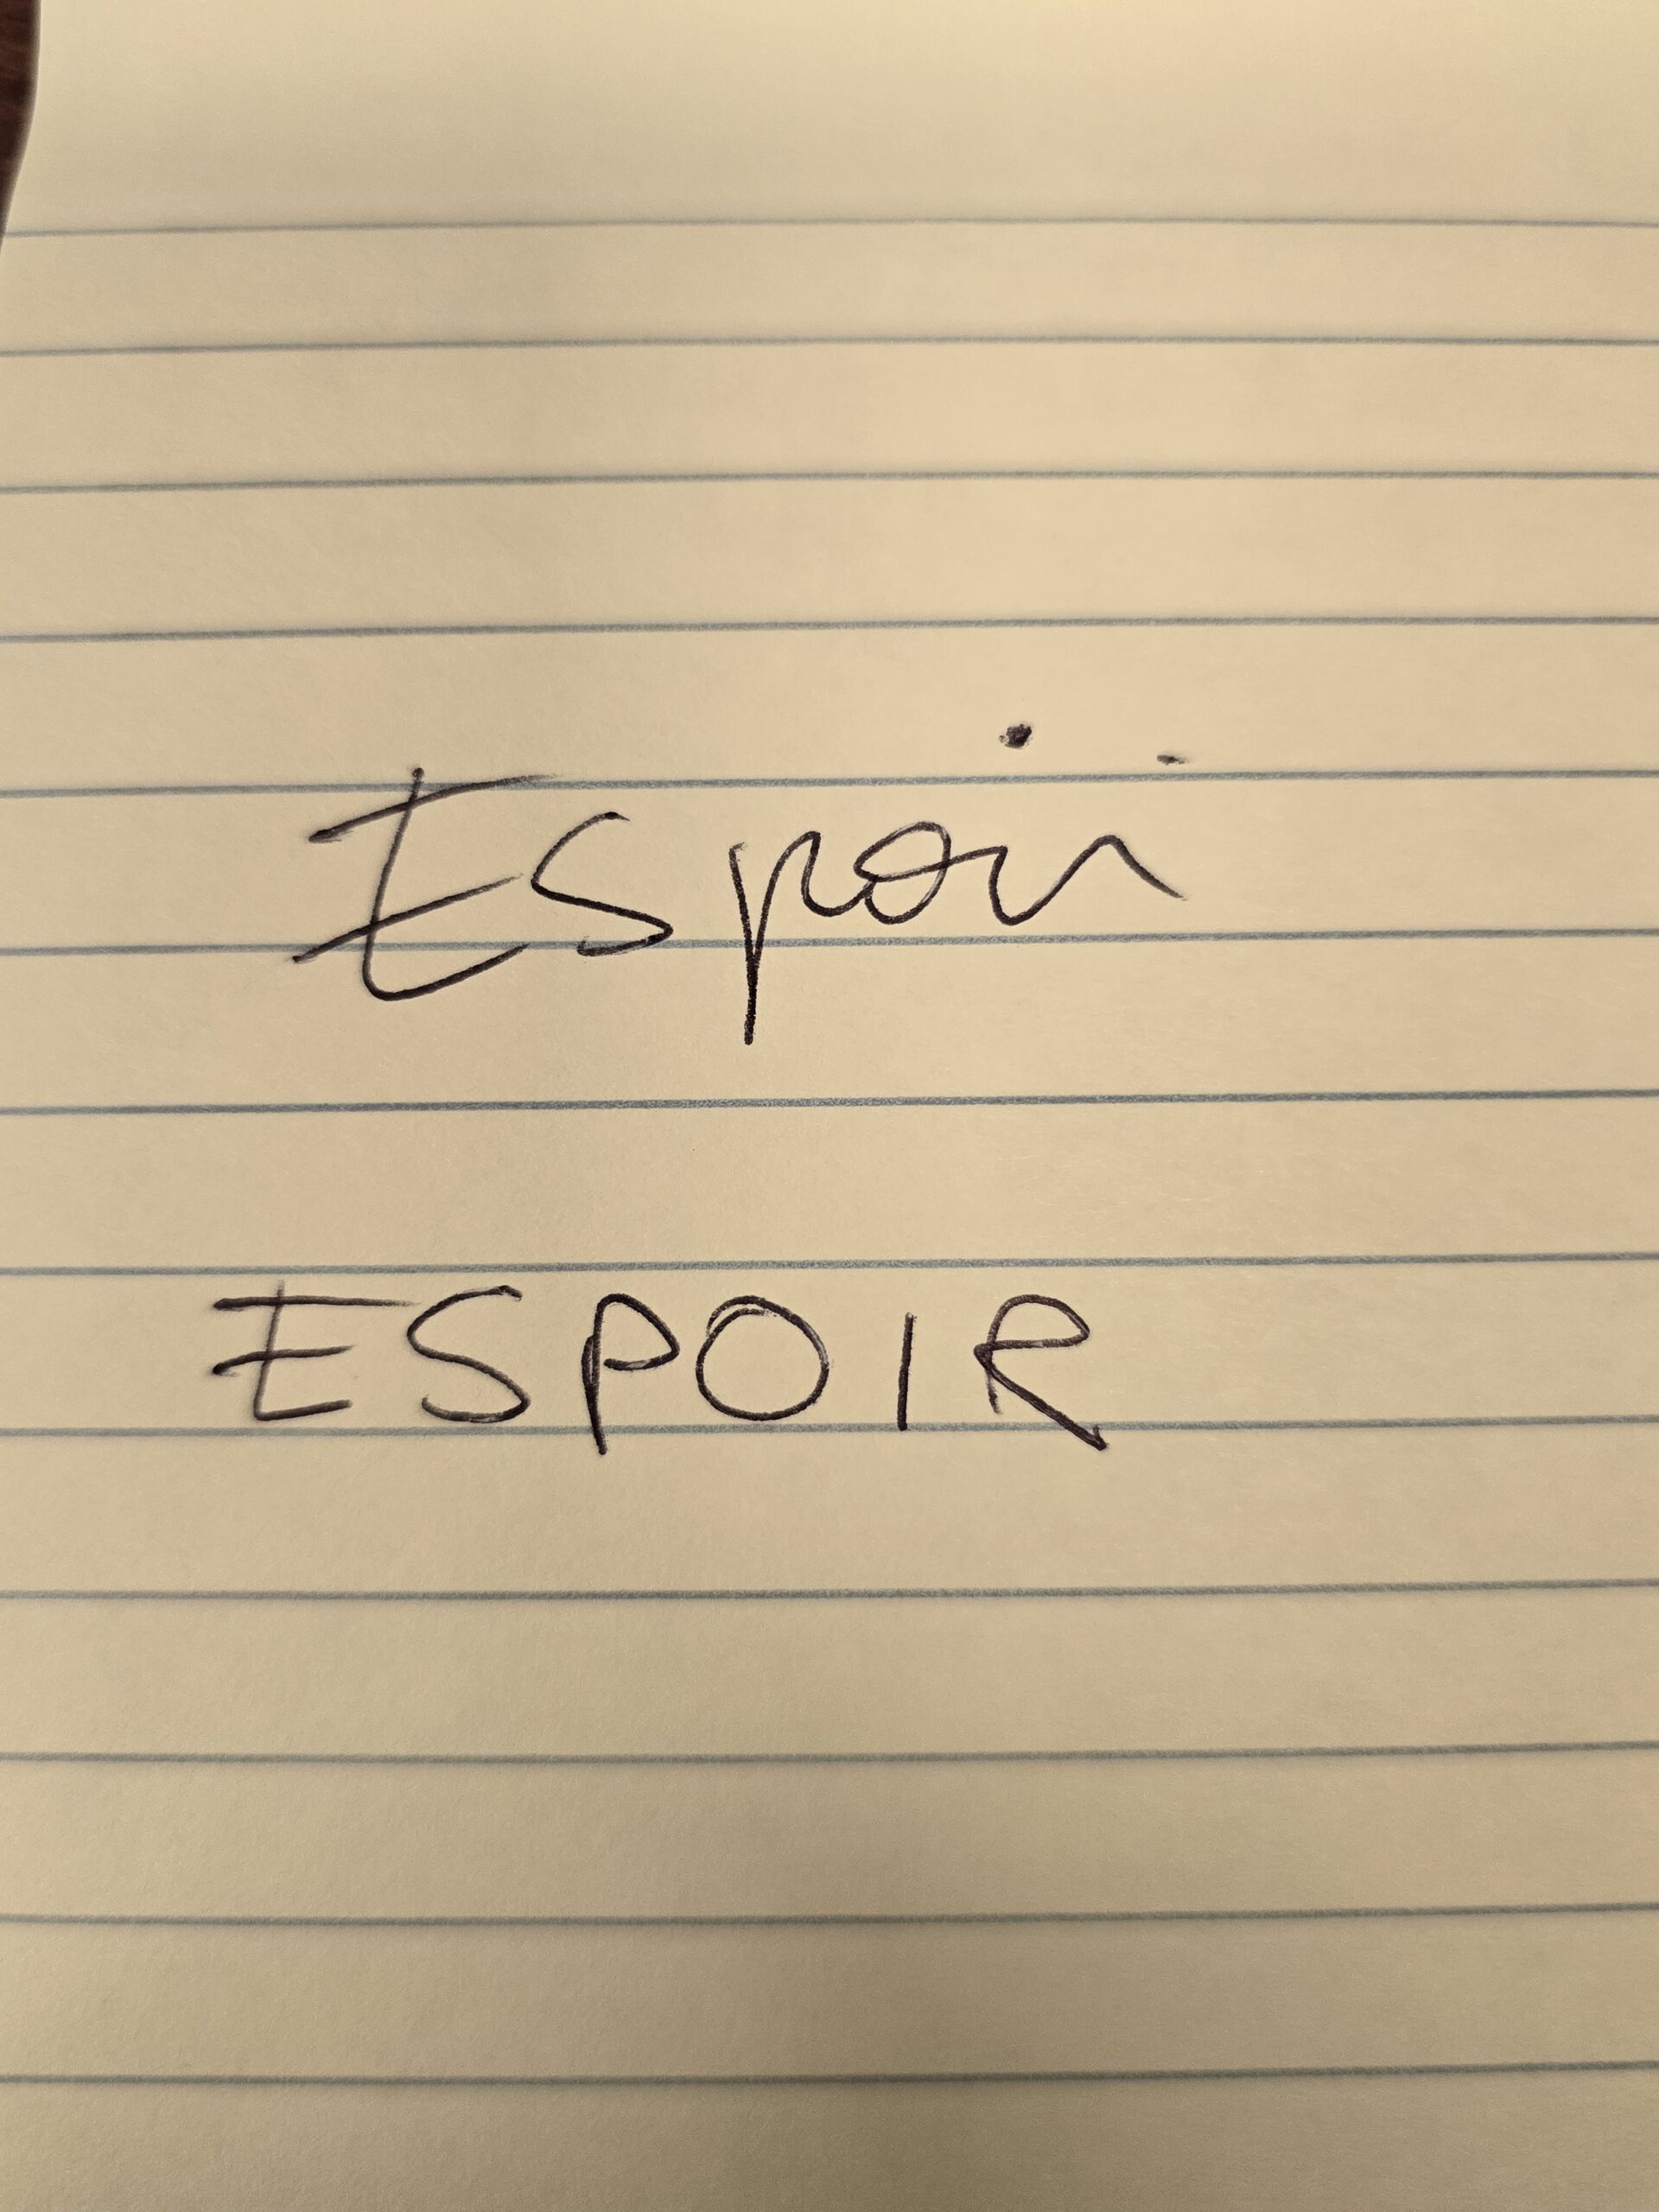 Espoir
ESPOIR